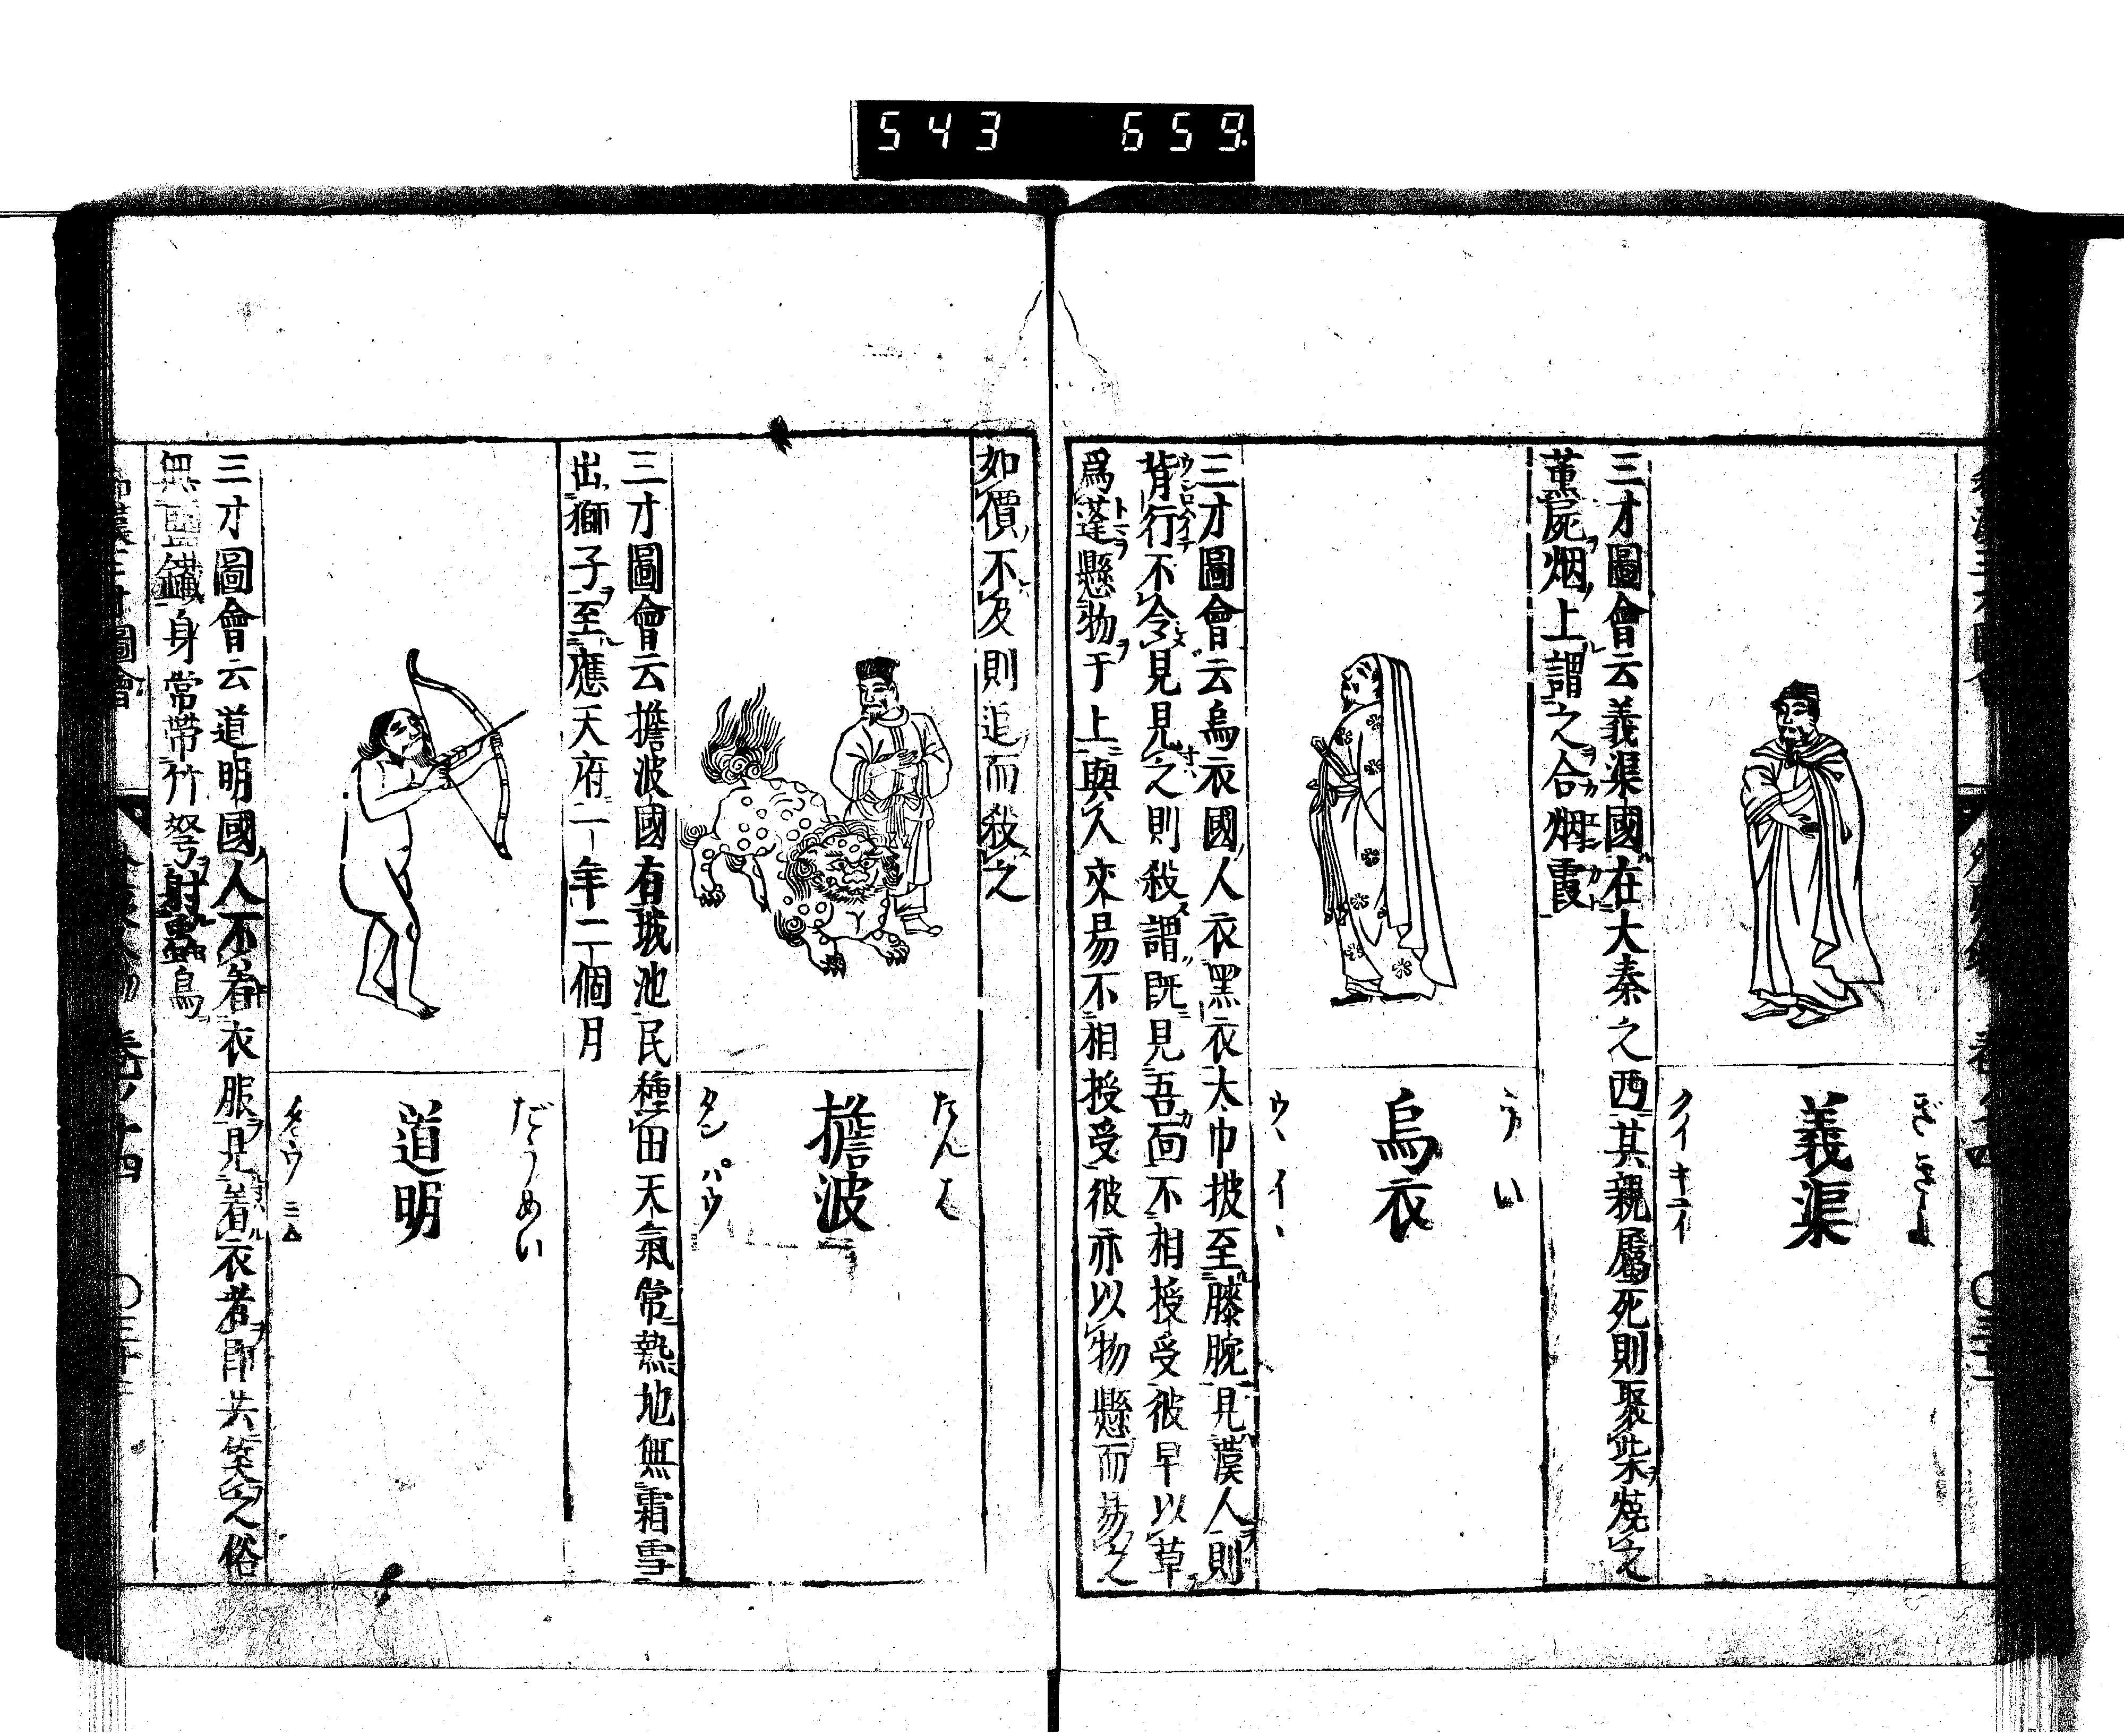 543 659.
ぎきよ
義渠
クイキユイ
三才圖會云義渠國在大秦之西其親屬死則聚柴燒之
薫屍烟上謂之合烟霞
うい
烏衣
ウヽイヽ
三才圖會云烏衣國人衣黑衣大巾披至膝腕見漢人則
背行不令見見之則殺謂既見吾面不相授受彼早以草
爲蓬懸物于上與人來易不相授受彼亦以物懸而易之
如價不及則追而殺之
たんは
擔波
タンパウ
三才圖會云擔波國有城池民種田天氣常熱地無霜雪
出獅子至應天府二年二個月
だうめい
道明
タウミム
三才圖會云道明國人不着衣服見着衣者即共笑之俗
無鹽鐵身常帶竹弩射蟲鳥